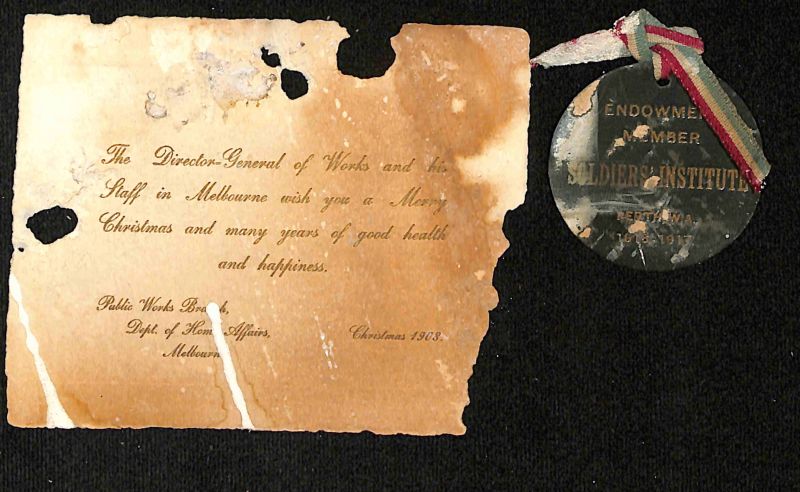 The Director-General of Works and his
Staff in Melbourne wish you a Merry
Christmas and many years of good health
and happiness.
Public Works
Dept. of Home Affairs,
Christmas 1908.
Melbourn
ENDOWME
MEMBER
SOLDIERS' INSTITUTE
PERTH, W.A.
1916-1917